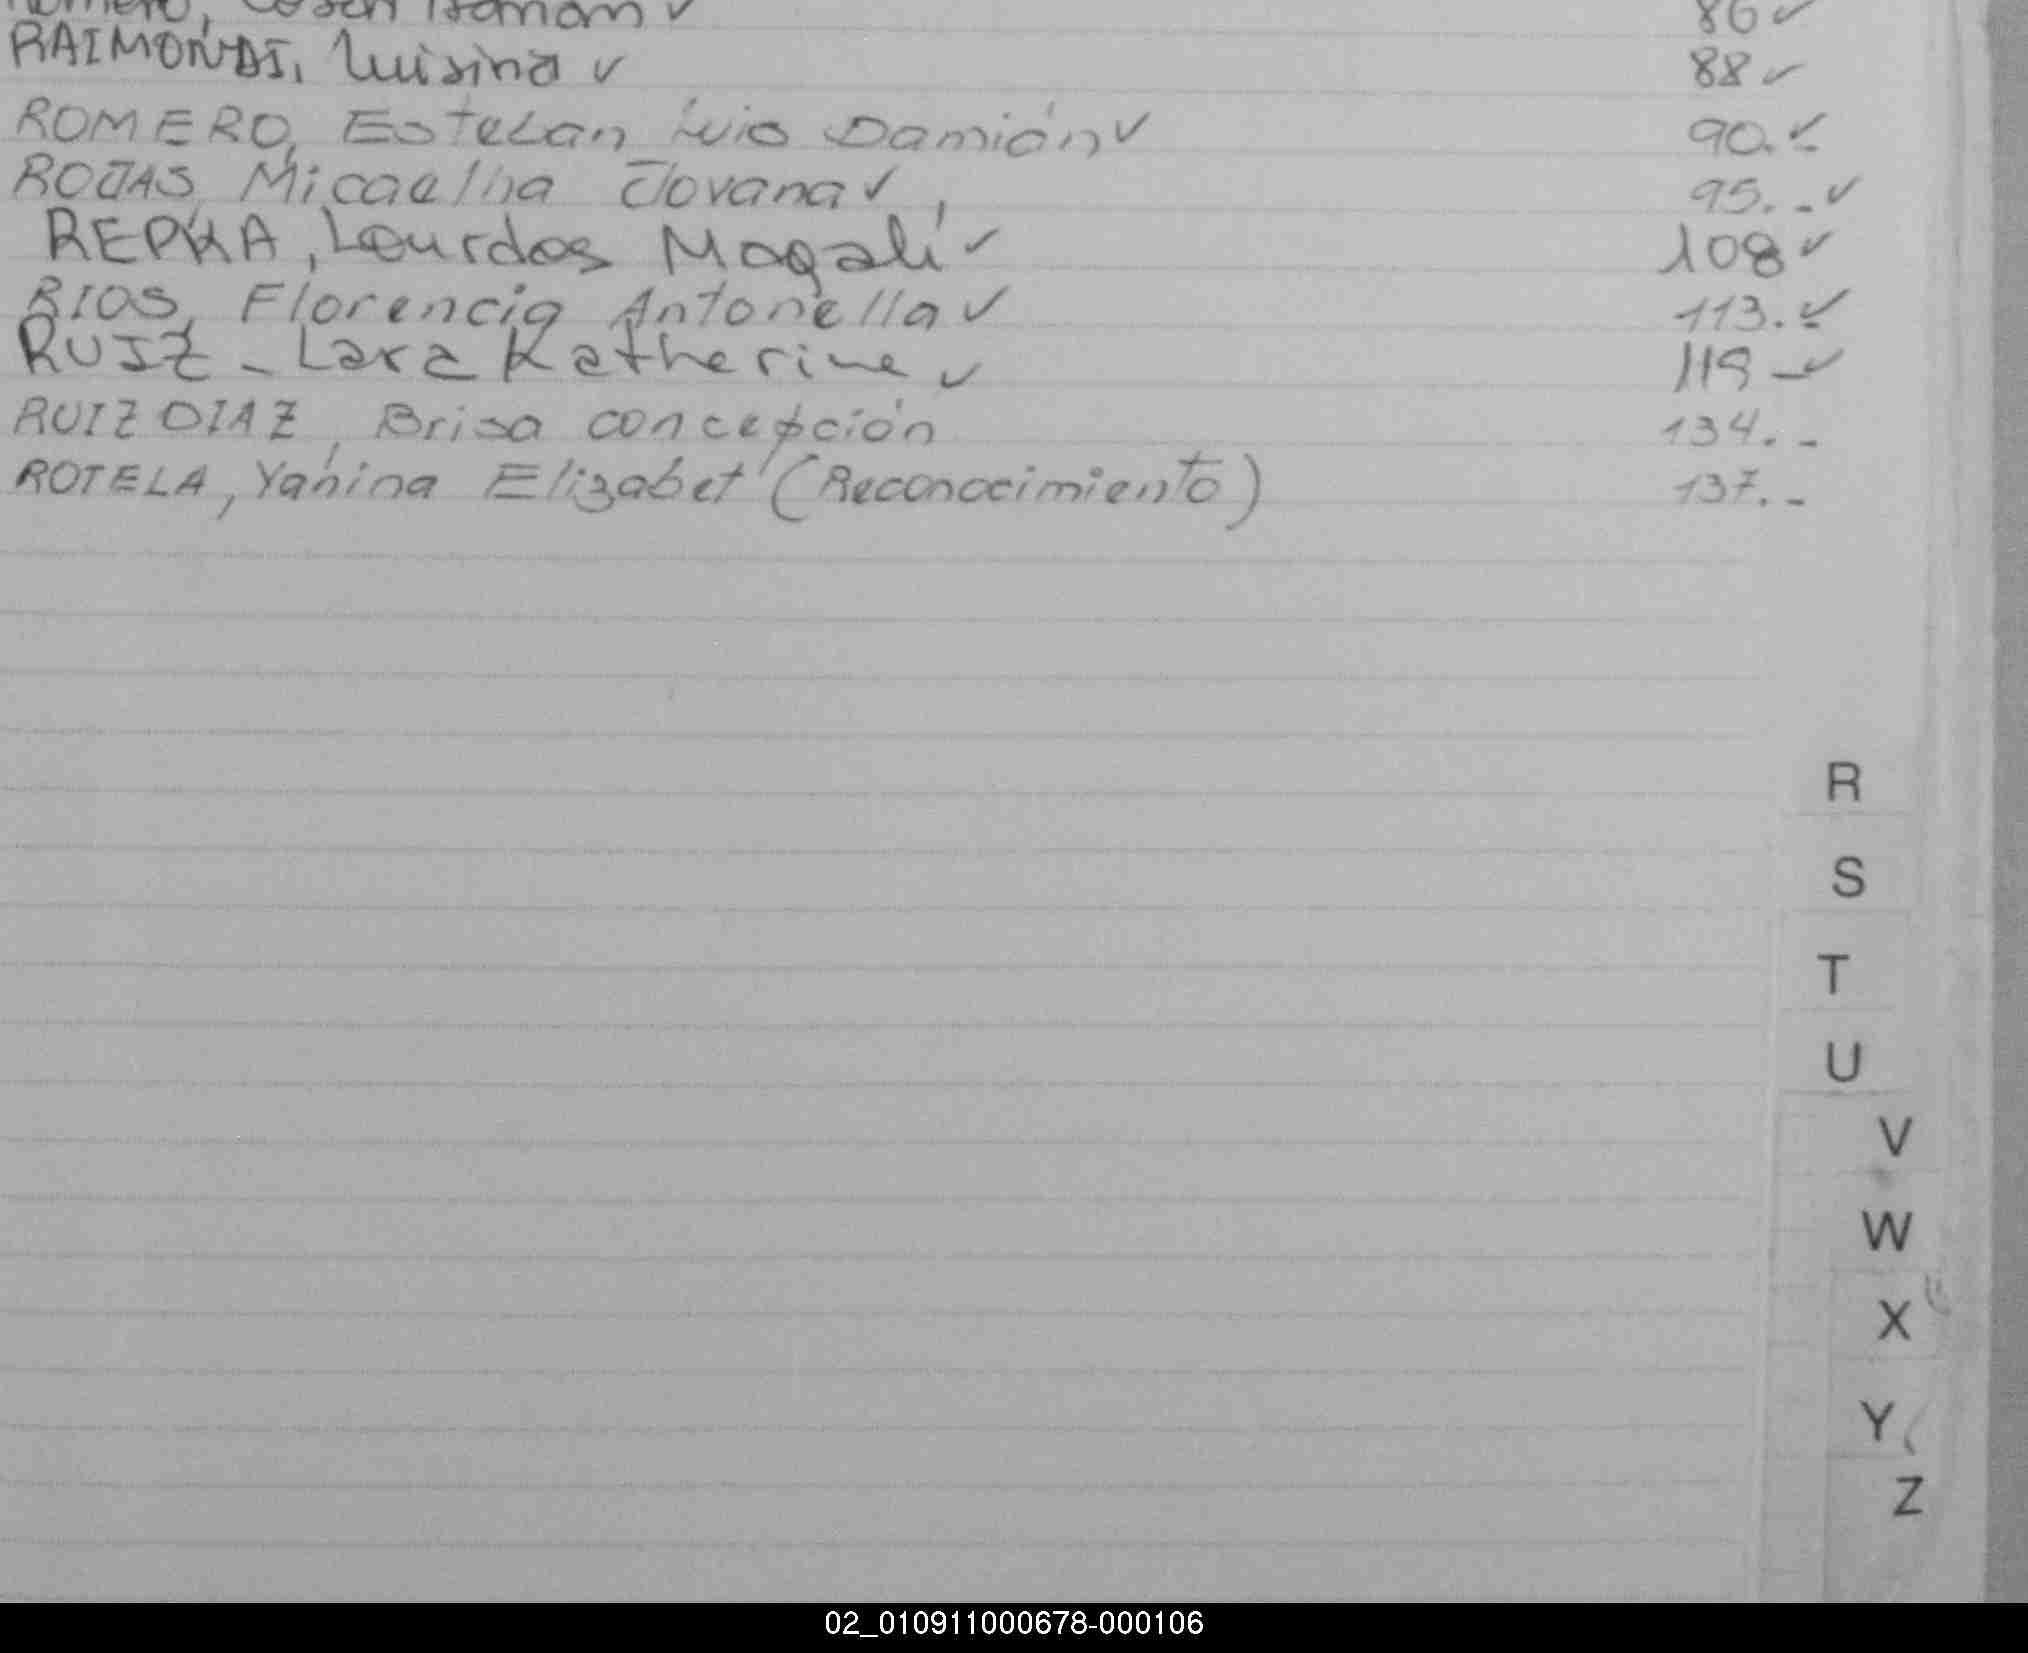 86 ✓
RAIMONDI, Luisina ✓ 88 ✓
ROMERO, Esteban Luis Damián ✓ 90. ✓
ROJAS, Micaelina Jovana ✓ 95. - ✓
REPKA, Lourdes Magalí ✓ 108 ✓
RIOS, Florencia Antonella ✓ 113. ✓
RUIZ - Lara Katherine ✓ 119 - ✓
RUIZ DIAZ, Brisa concepción 134. -
ROTELA, Yanina Elizabet (Reconocimiento) 137. -
R
S
T
U
V
W
X
Y
Z
02_010911000678-000106